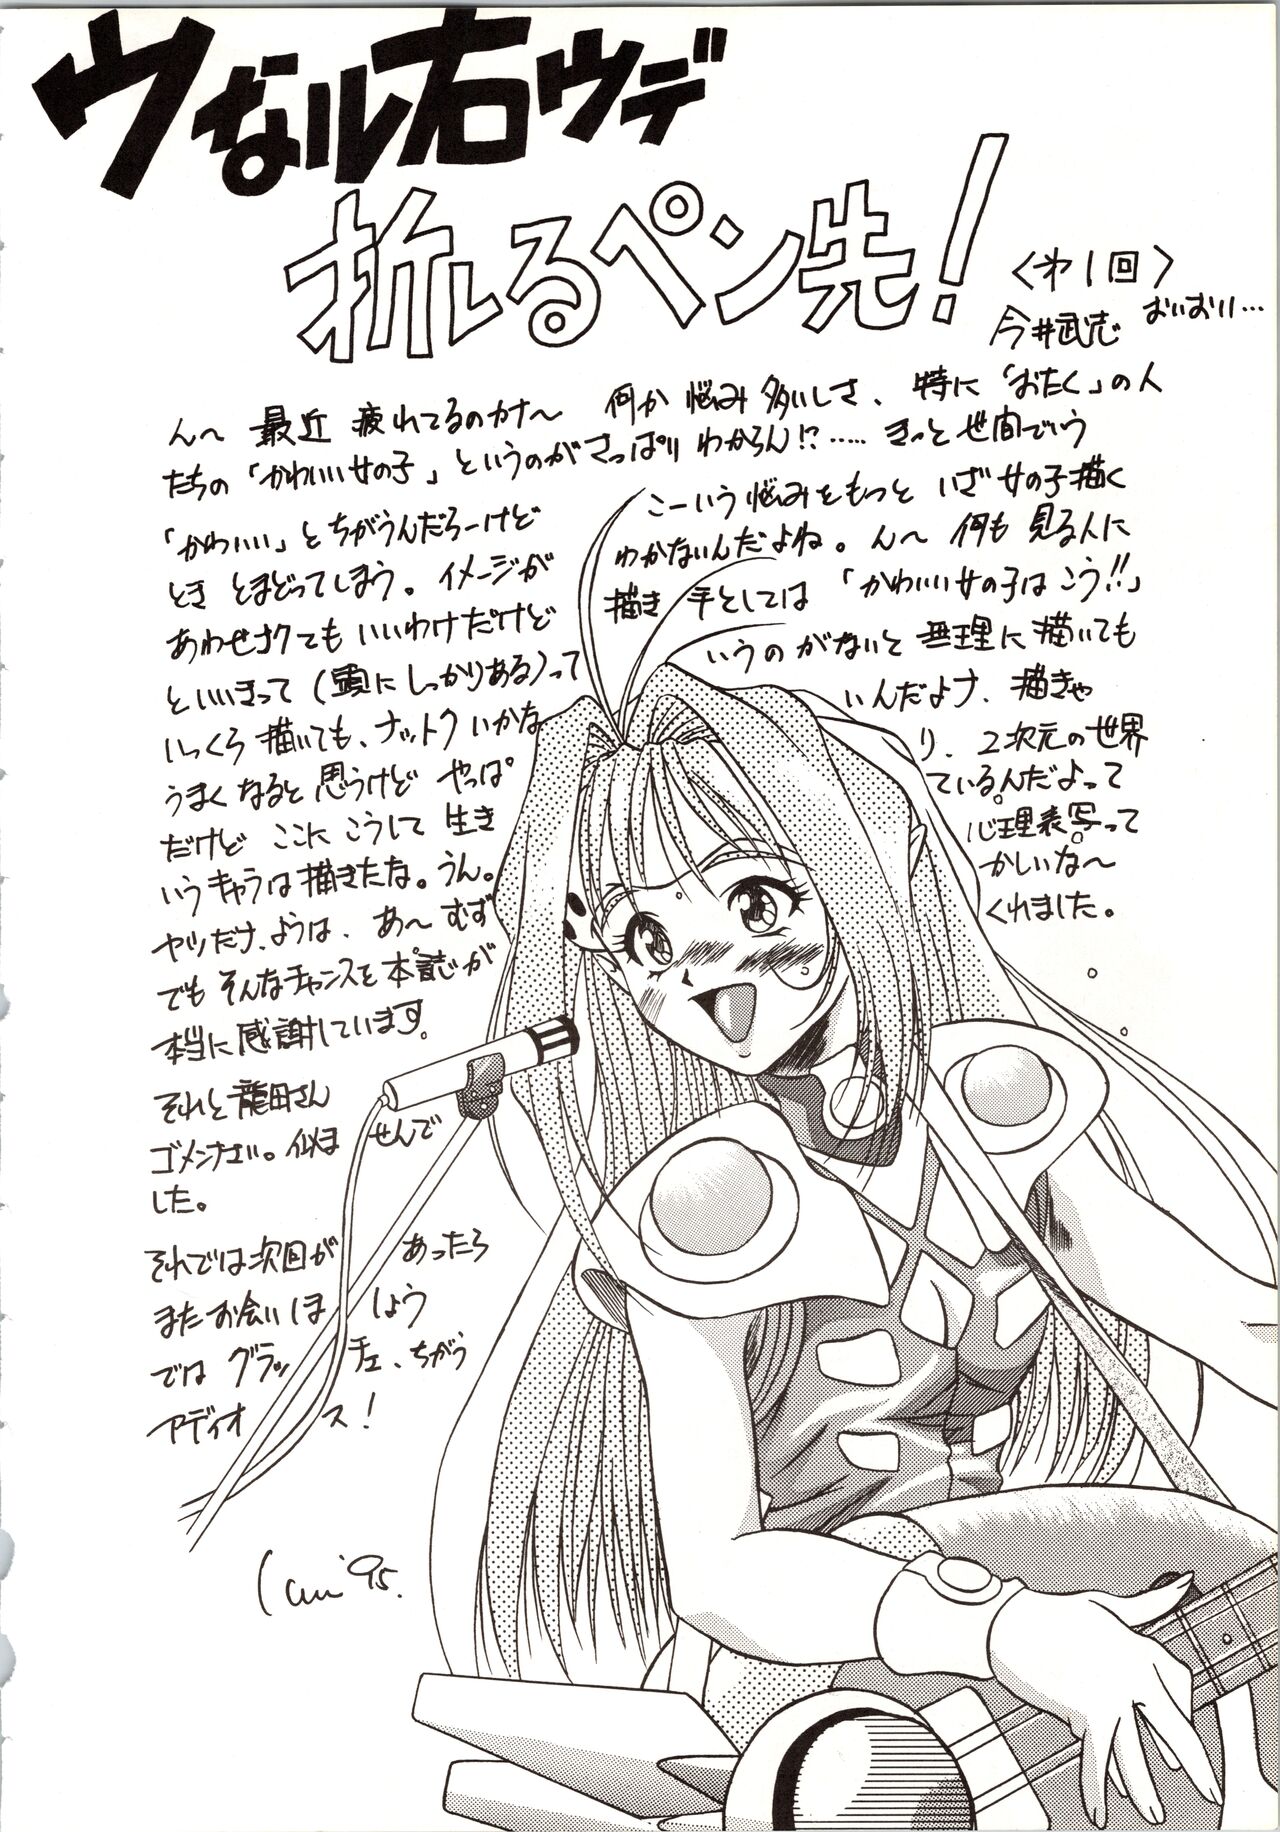 ウなル右ウデ
折れるペン先！
〈第1回〉
今井武志 おいおい…
ん～ 最近 疲れてるのカナ～ 何か悩み多いしさ、特に「おたく」の人
たちの「かわいい女の子」というのがさっぱりわからん!?…… きっと世間でいう
「かわいい」とちがうんだろーけど こーいう悩みをもっと いざ女の子描く
とき とまどってしまう。イメージが わかないんだよね。ん～ 何も見る人に
あわせナクてもいいわけだけど 描き手としては「かわいい女の子はこう!!」
といいきって(頭にしっかりある)って いうのがないと無理に描いても
いっくら描いても、ナットクいかな いんだよナ、描きゃ
うまくなると思うけど やっぱ り、2次元の世界
だけど ここにこうして生き ているんだよって
いうキャラは描きたな。うん。 心理表写って
ヤツだナ、ようは、あ～ むず かしいな～
でもそんなチャンスを本誌が くれました。
本当に感謝しています。
それと龍田さん
ゴメンナさい。似ま せんで
した。
それでは次回が あったら
またお会いしま しょう
ではグラッ チェ、ちがう
アディオ ス！
'95.